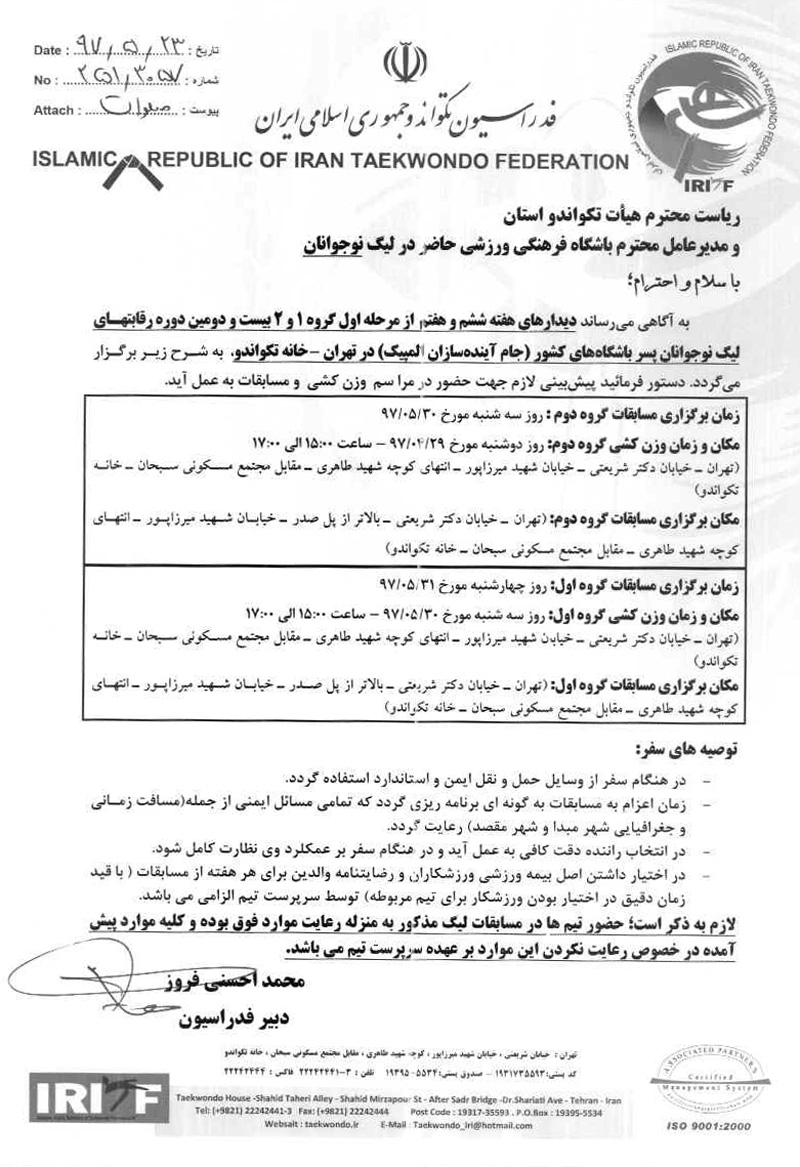 Date : ۹۷,۵,۲۳ تاریخ :
No : ۲۵۱,۳۰۵۷ شماره :
Attach : پیوست :
فدراسیون تکواندو جمهوری اسلامی ایران
ISLAMIC REPUBLIC OF IRAN TAEKWONDO FEDERATION
ISLAMIC REPUBLIC OF IRAN TAEKWONDO FEDERATION
فدراسیون تکواندو جمهوری اسلامی ایران
IRITF
ریاست محترم هیأت تکواندو استان
و مدیرعامل محترم باشگاه فرهنگی ورزشی حاضر در لیگ نوجوانان
با سلام و احترام؛
به آگاهی می‌رساند دیدارهای هفته ششم و هفتم از مرحله اول گروه ۱ و ۲ بیست و دومین دوره رقابتهای
لیگ نوجوانان پسر باشگاه‌های کشور (جام آینده‌سازان المپیک) در تهران - خانه تکواندو، به شرح زیر برگزار
می‌گردد. دستور فرمائید پیش‌بینی لازم جهت حضور در مراسم وزن کشی و مسابقات به عمل آید.
زمان برگزاری مسابقات گروه دوم : روز سه شنبه مورخ ۹۷/۰۵/۳۰
مکان و زمان وزن کشی گروه دوم: روز دوشنبه مورخ ۹۷/۰۴/۲۹ – ساعت ۱۵:۰۰ الی ۱۷:۰۰
(تهران – خیابان دکتر شریعتی – خیابان شهید میرزاپور – انتهای کوچه شهید طاهری – مقابل مجتمع مسکونی سبحان – خانه
تکواندو)
مکان برگزاری مسابقات گروه دوم: (تهران – خیابان دکتر شریعتی – بالاتر از پل صدر – خیابان شهید میرزاپور – انتهای
کوچه شهید طاهری – مقابل مجتمع مسکونی سبحان – خانه تکواندو)
زمان برگزاری مسابقات گروه اول: روز چهارشنبه مورخ ۹۷/۰۵/۳۱
مکان و زمان وزن کشی گروه اول: روز سه شنبه مورخ ۹۷/۰۵/۳۰ – ساعت ۱۵:۰۰ الی ۱۷:۰۰
(تهران – خیابان دکتر شریعتی – خیابان شهید میرزاپور – انتهای کوچه شهید طاهری – مقابل مجتمع مسکونی سبحان – خانه
تکواندو)
مکان برگزاری مسابقات گروه اول: (تهران – خیابان دکتر شریعتی – بالاتر از پل صدر – خیابان شهید میرزاپور – انتهای
کوچه شهید طاهری – مقابل مجتمع مسکونی سبحان – خانه تکواندو)
توصیه های سفر:
- در هنگام سفر از وسایل حمل و نقل ایمن و استاندارد استفاده گردد.
- زمان اعزام به مسابقات به گونه ای برنامه ریزی گردد که تمامی مسائل ایمنی از جمله(مسافت زمانی
و جغرافیایی شهر مبدا و شهر مقصد) رعایت گردد.
- در انتخاب راننده دقت کافی به عمل آید و در هنگام سفر بر عمکلرد وی نظارت کامل شود.
- در اختیار داشتن اصل بیمه ورزشی ورزشکاران و رضایتنامه والدین برای هر هفته از مسابقات ( با قید
زمان دقیق در اختیار بودن ورزشکار برای تیم مربوطه) توسط سرپرست تیم الزامی می باشد.
لازم به ذکر است؛ حضور تیم ها در مسابقات لیگ مذکور به منزله رعایت موارد فوق بوده و کلیه موارد پیش
آمده در خصوص رعایت نکردن این موارد بر عهده سرپرست تیم می باشد.
محمد احسنی فروز
دبیر فدراسیون
تهران : خیابان شریعتی ، خیابان شهید میرزاپور ، کوچه شهید طاهری ، مقابل مجتمع مسکونی سبحان ، خانه تکواندو
کد پستی: ۱۹۳۱۷۳۵۵۹۳ – صندوق پستی: ۵۵۳۴-۱۹۳۹۵ تلفن : ۳-۲۲۲۴۲۴۴۱ فاکس : ۲۲۲۴۲۴۴۴
IRITF
Taekwondo House -Shahid Taheri Alley - Shahid Mirzapour St - After Sadr Bridge -Dr.Shariati Ave - Tehran - Iran
Tel: (+9821) 22242441-3 Fax: (+9821) 22242444 Post Code : 19317-35593 . P.O.Box : 19395-5534
Websait : taekwondo.ir E-Mail : Taekwondo_iri@hotmail.com
ASSOCIATED PARTNERS
Certified
Management System
ISO 9001:2000